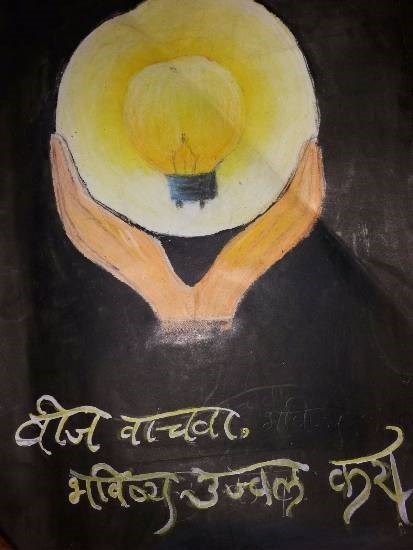 वीज वाचवा, भविष्य
भविष्य उज्वल करा